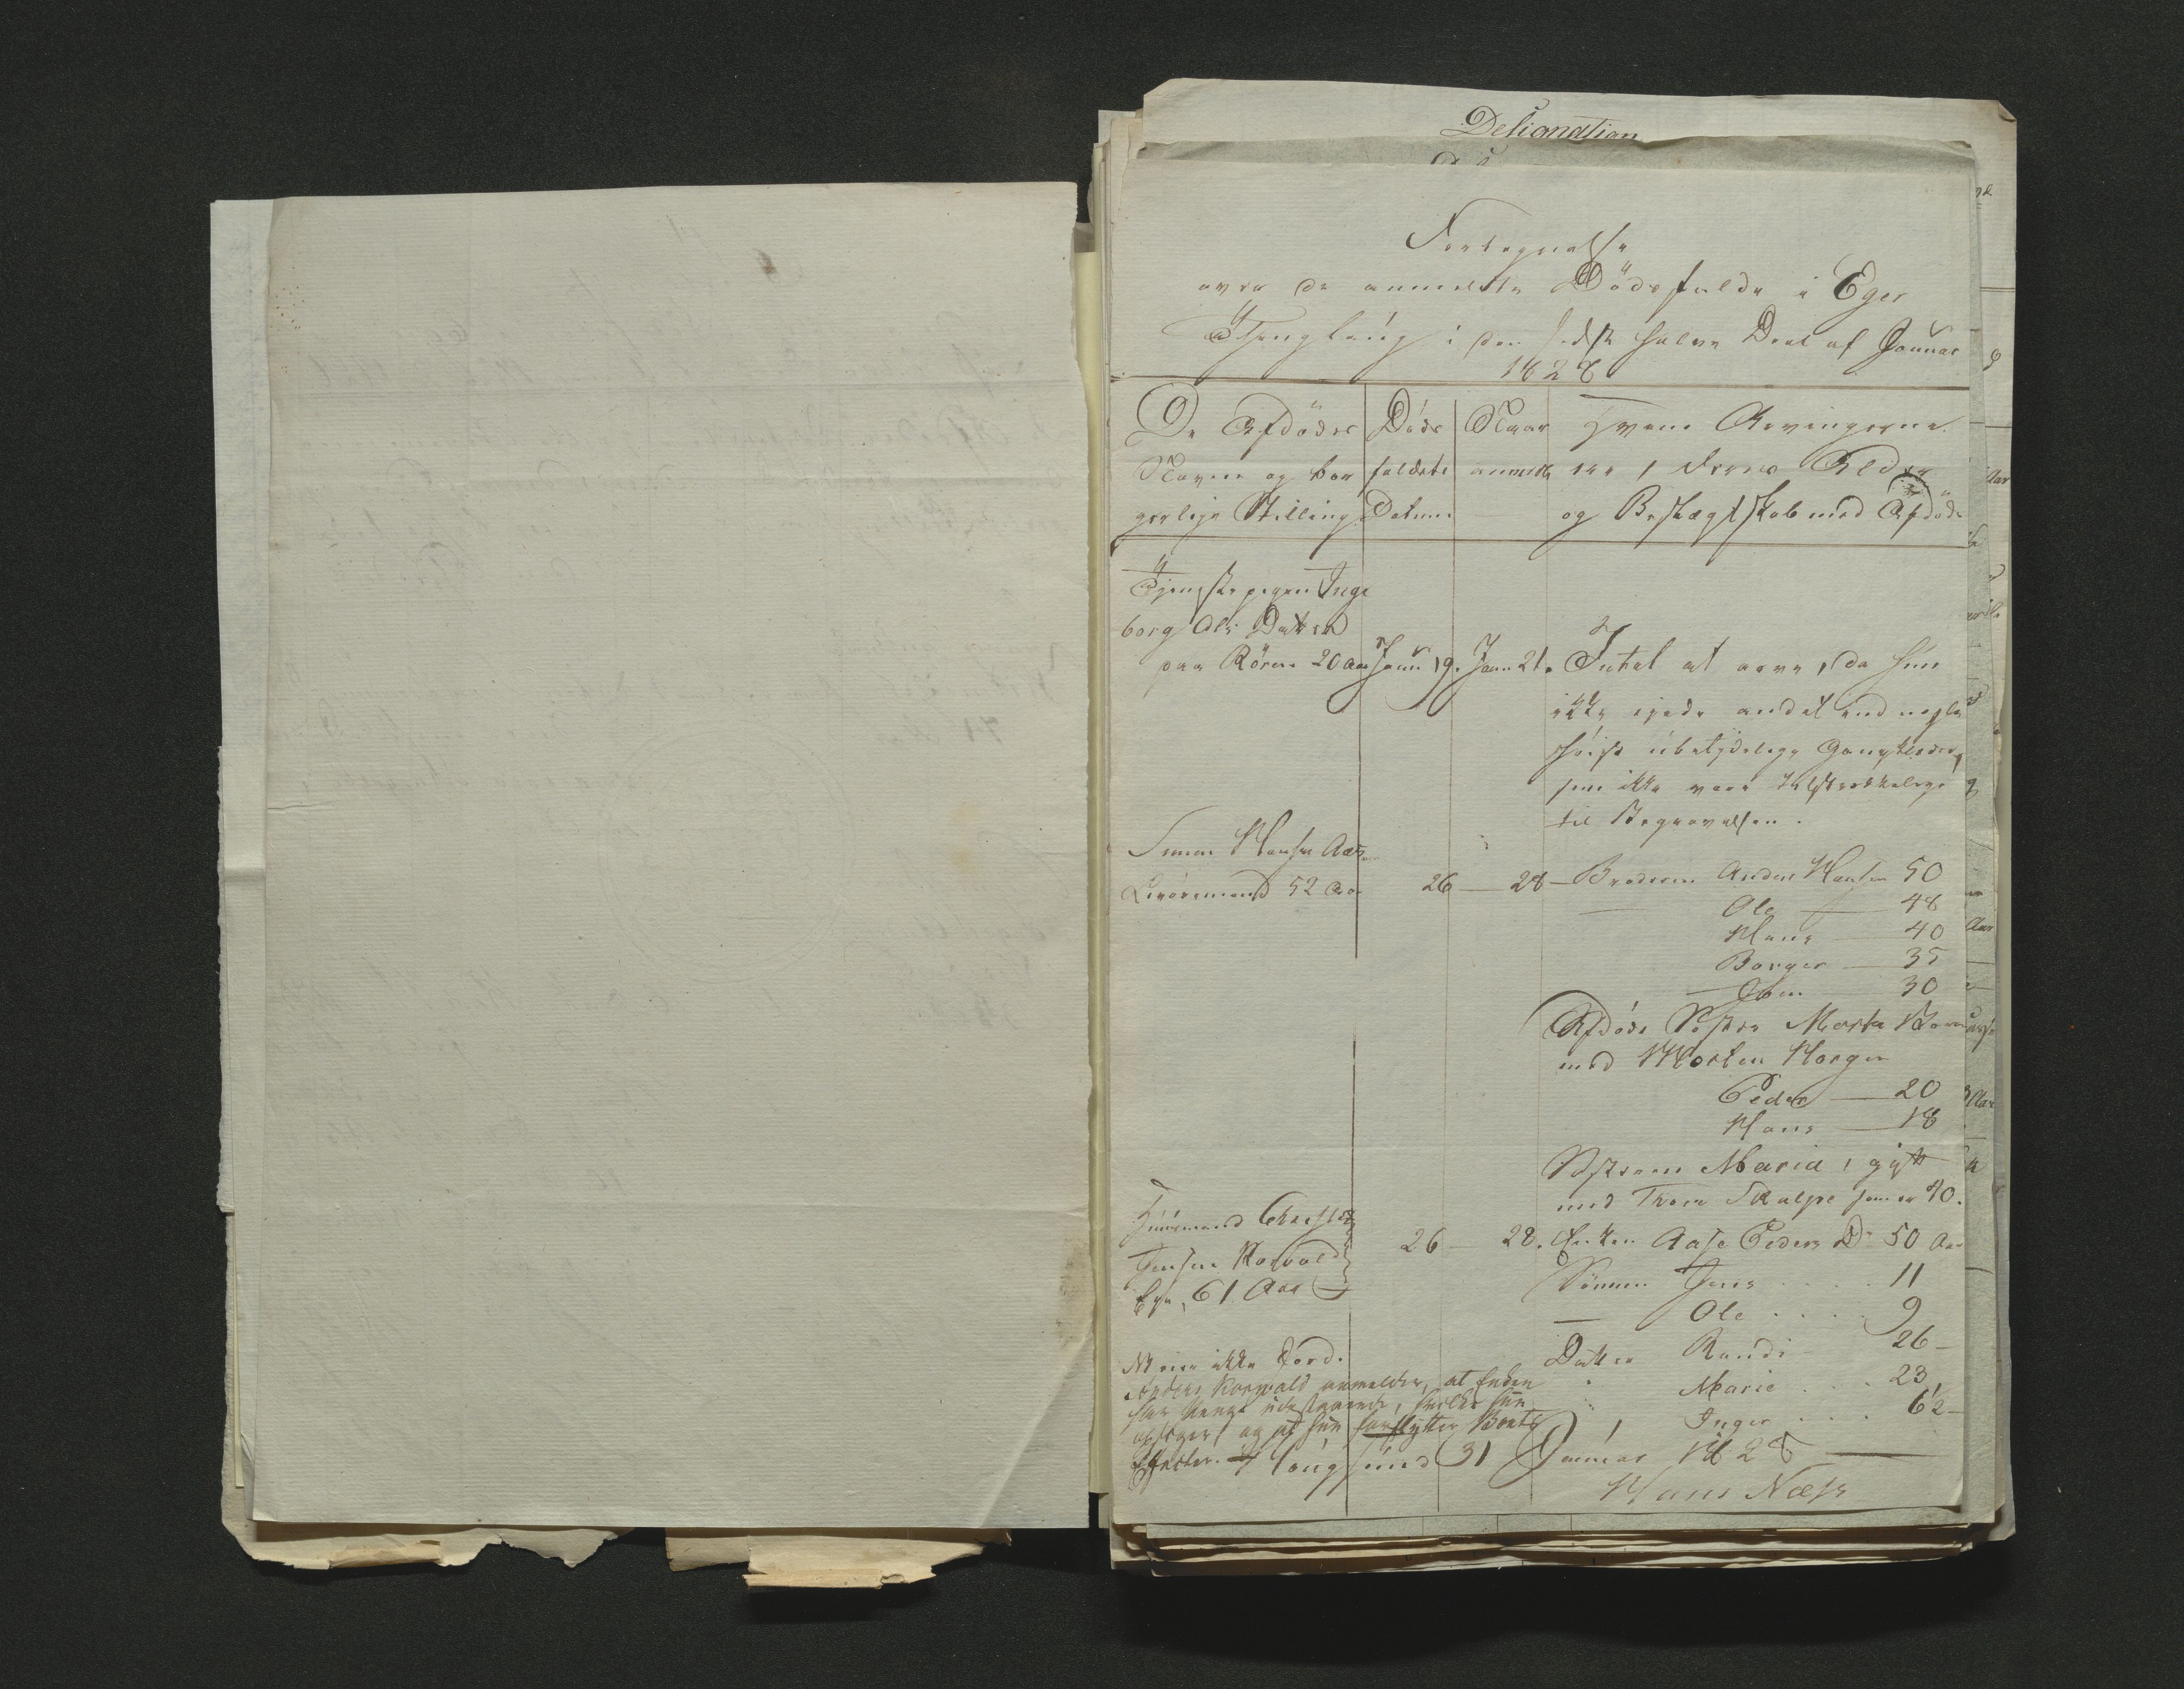 Designation
Fortegnelse
over de anmeldte Dödsfalde i Eger
Tinglaug i den sidste halve Deel af Januar
1828
De Afdödes
Navne og bor
gerlige Stilling
Döds
faldets
Datum
Naar
anmeldt
Hvem Arvingerne
ere, deres Alder
og Beslægtskab med Afdöde
Tjenstepigen Inge
borg Ols Datter
paa Rören 20 Aar Janu 19. Janu 21. Intet at arve, da hun
ikke ejede andet end nogle
höist ubetydelige Gangklæder,
som ikke vare tilstrækkelige
til Begravelsen.
Simen Hansen Aas
26 — 28 — Broderen Anders Hansen 50
52 Aar
— Ole — 48
Hans — 40
Borger — 35
— Iben — 30
Afdöde Söster Marta Börn
med Morten Horgen
Peder — 20
Hans — 18
Sösteren Maria, gift
med Thore Skalpe som er 40.
Huusmand Christen
Jensen Korvald
Eye, 61 Aar
26 — 28. Enken Aase Peders D. 50 Aar
Sönnen Jens . . . 11
— Ole . . . 9
Datter Randi — 26 —
" Marie . . . 23
" Inger . . . 6½ —
Meer ikke Jord.
Anders Korvald anmelder, at Enken
har Penge udestaaende, hvilke hun
opsiger og at hun forflytter Boets
Effecter.
Hougsund 31 Januar 1828 —
Hans Næss